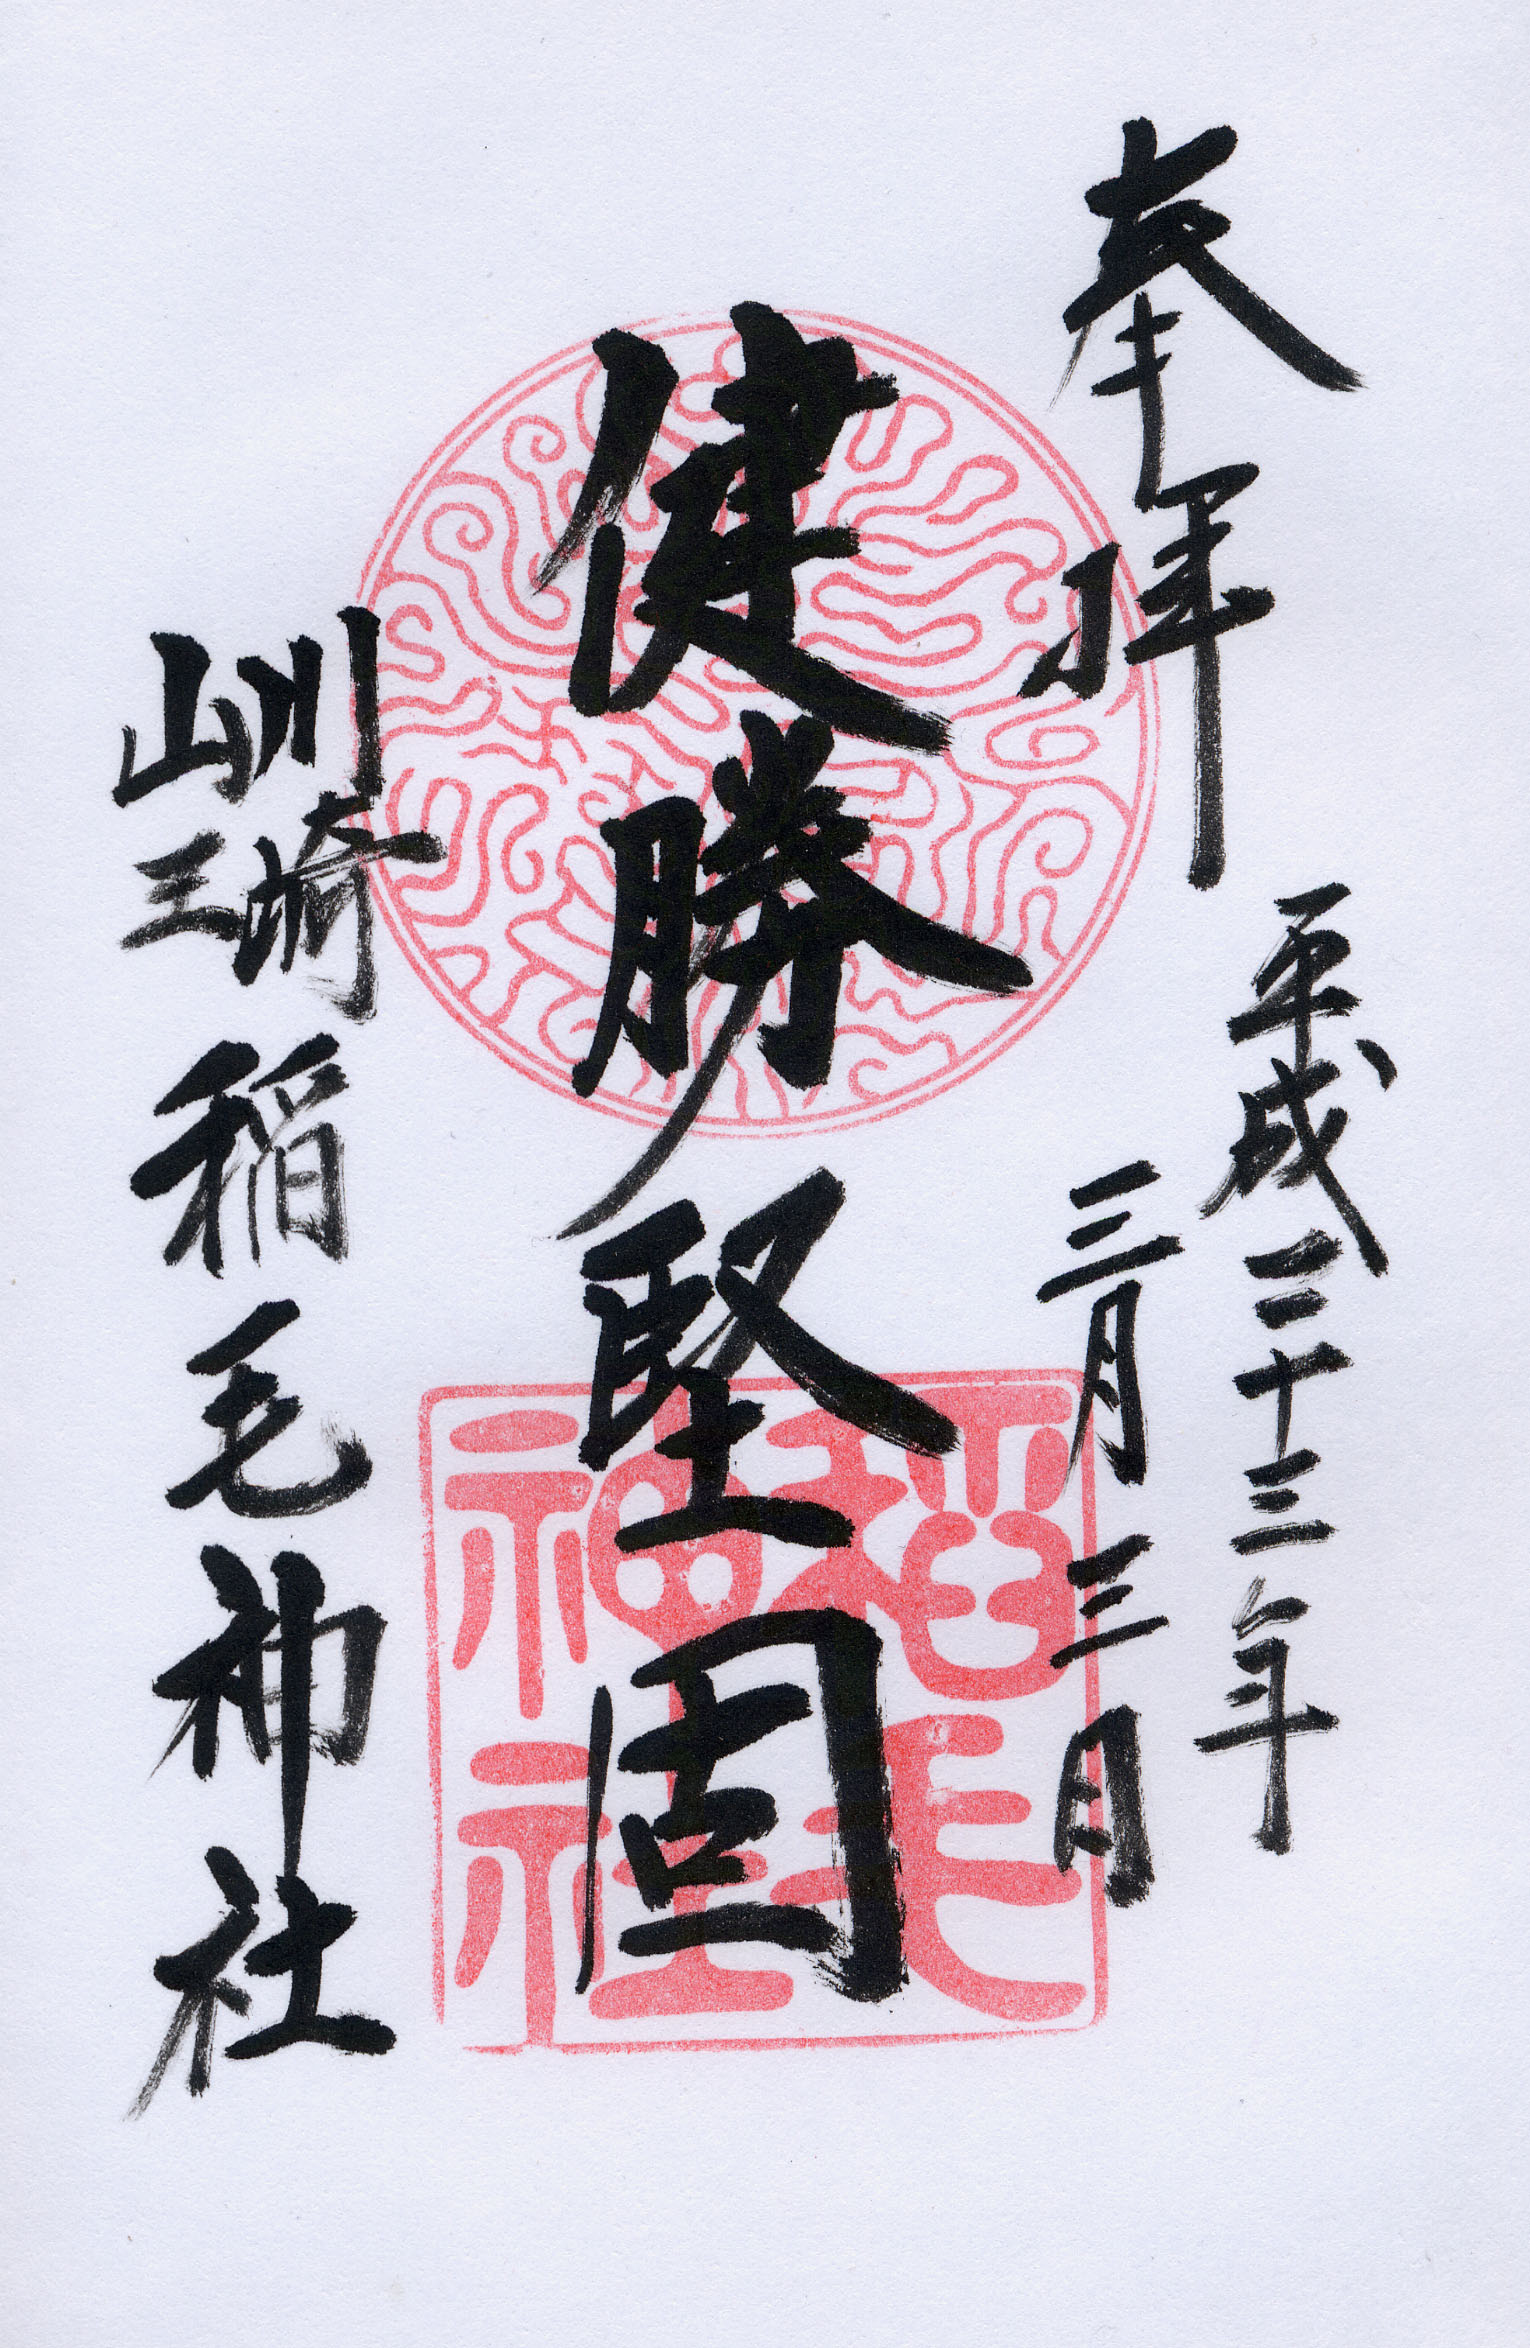 奉拝
平成二十三年
三月三日
健勝堅固
稲毛
神社
川崎
山王
稲毛神社